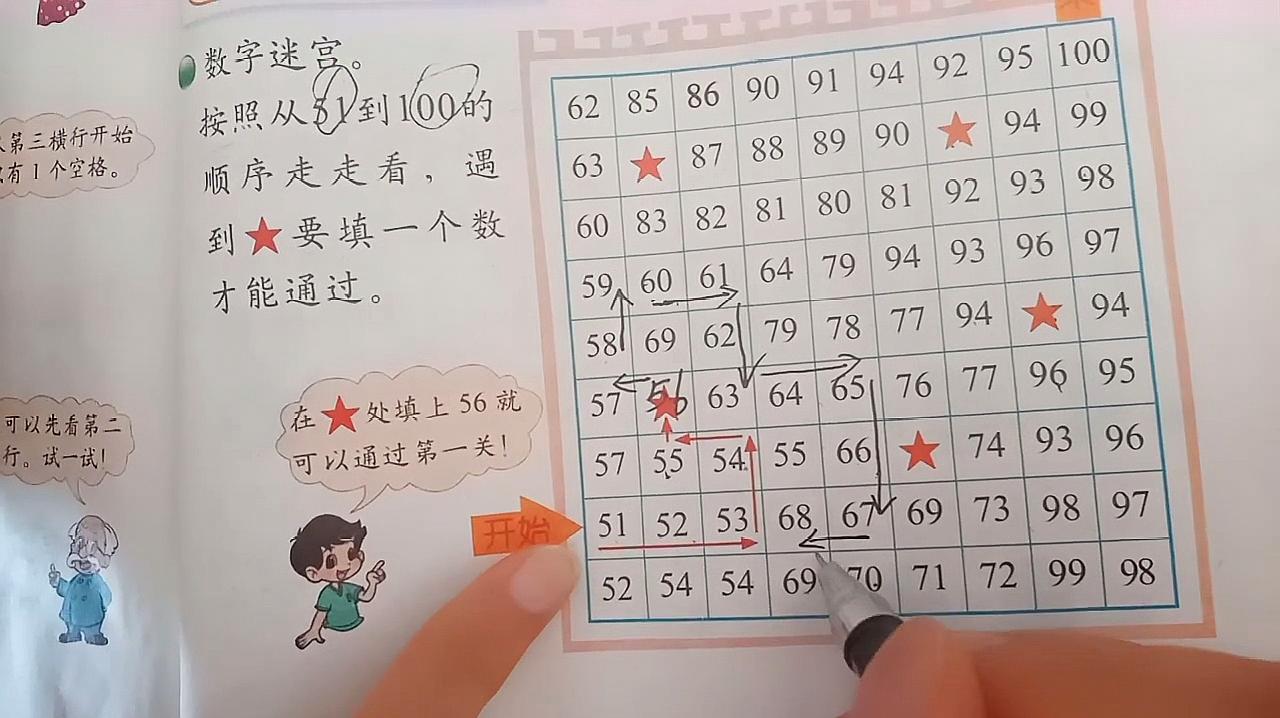 数字迷宫。
按照从51到100的
顺序走走看，遇
到★要填一个数
才能通过。
第三横行开始
有1个空格。
可以先看第二
行。试一试！
在★处填上56就
可以通过第一关！
开始
62 85 86 90 91 94 92 95 100
63 ★ 87 88 89 90 ★ 94 99
60 83 82 81 80 81 92 93 98
59 60 61 64 79 94 93 96 97
58 69 62 79 78 77 94 ★ 94
57 56 63 64 65 76 77 96 95
57 55 54 55 66 ★ 74 93 96
51 52 53 68 67 69 73 98 97
52 54 54 69 70 71 72 99 98